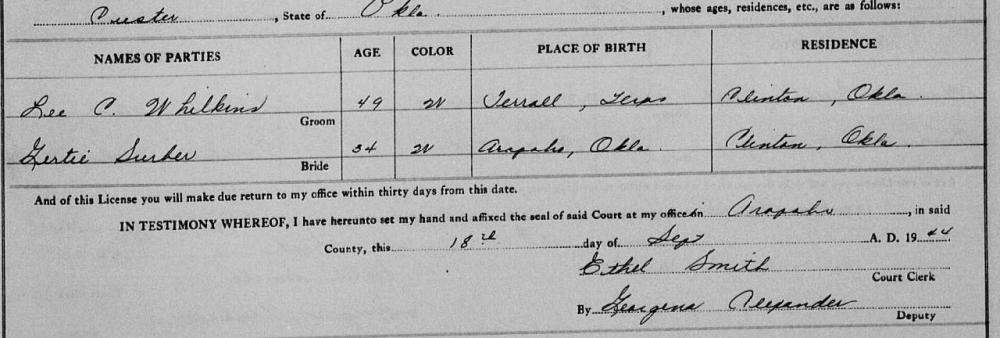 Custer, State of Okla., whose ages, residences, etc., are as follows:
NAMES OF PARTIES AGE COLOR PLACE OF BIRTH RESIDENCE
Lee C. Whilkins Groom 49 W Terrall, Texas Clinton, Okla.
Gertie Surber Bride 34 W Arapaho, Okla. Clinton, Okla.
And of this License you will make due return to my office within thirty days from this date.
IN TESTIMONY WHEREOF, I have hereunto set my hand and affixed the seal of said Court at my office in Arapaho, in said
County, this 18th day of Sept A. D. 1944
Ethel Smith
Court Clerk
By Georgena Alexander
Deputy